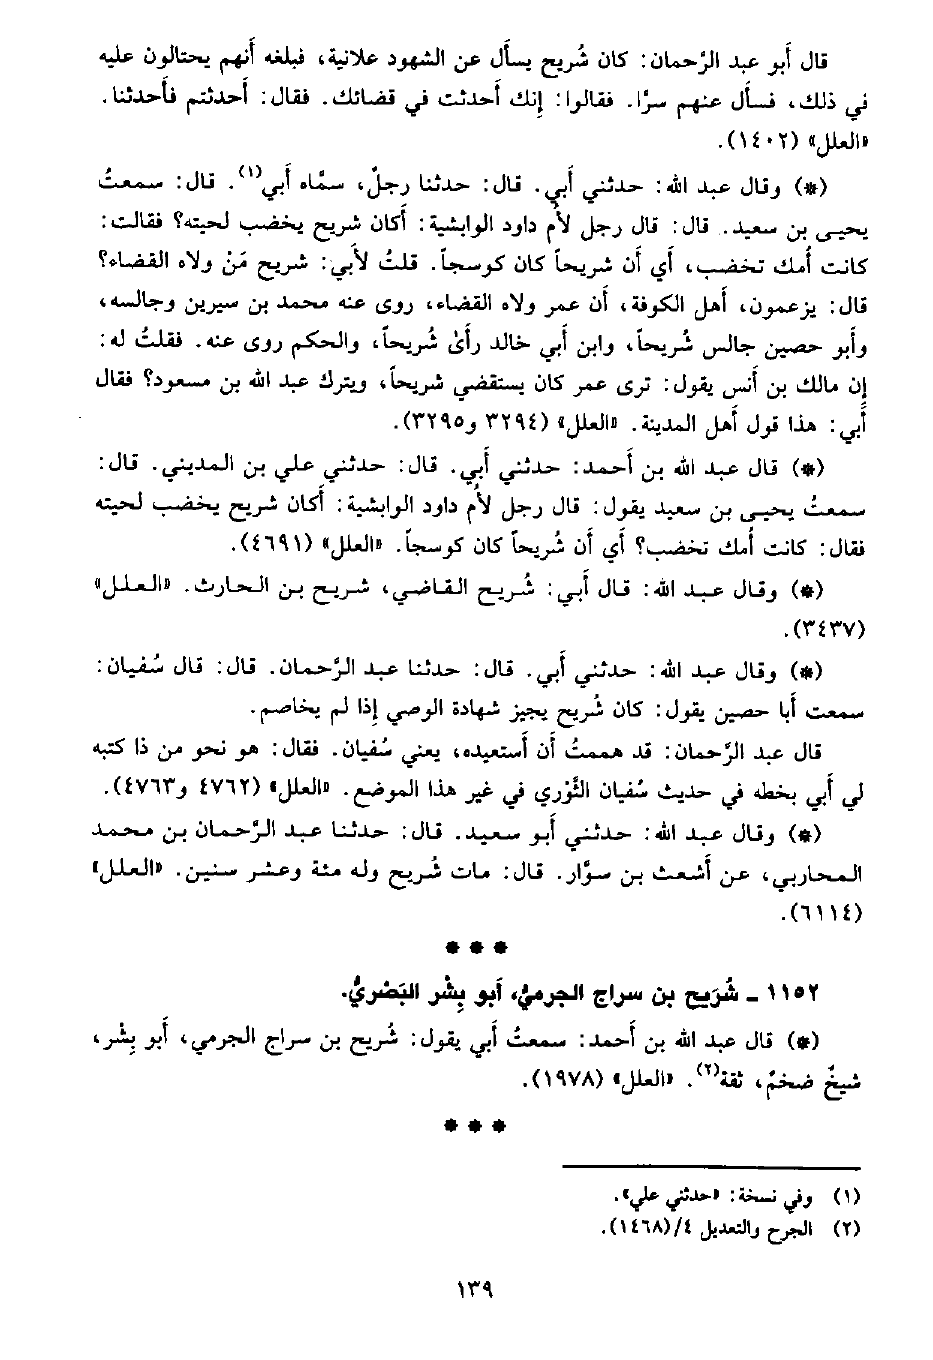 قال أَبو عبد الرَّحمان: كان شُريح يسأل عن الشهود علانية، فبلغه أَنهم يحتالون عليه
في ذلك، فسأل عنهم سرًّا. فقالوا: إِنك أَحدثت في قضائك. فقال: أَحدثتم فأَحدثنا.
«العلل» (١٤٠٢).
(*) وقال عبد الله: حدثني أَبي. قال: حدثنا رجلٌ، سمَّاه أَبي(١). قال: سمعتُ
يحيـى بن سعيد. قال: قال رجل لأُم داود الوابشية: أَكان شريح يخضب لحيته؟ فقالت:
كانت أُمك تخضب، أَي أَن شريحاً كان كوسجاً. قلتُ لأَبي: شريح مَنْ ولاه القضاء؟
قال: يزعمون، أَهل الكوفة، أَن عمر ولاه القضاء، روى عنه محمد بن سيرين وجالسه،
وأَبو حصين جالس شُريحاً، وابن أَبي خالد رأَىٰ شُريحاً، والحكم روى عنه. فقلتُ له:
إِن مالك بن أَنس يقول: ترى عمر كان يستقضي شريحاً، ويترك عبد الله بن مسعود؟ فقال
أَبي: هذا قول أَهل المدينة. «العلل» (٣٢٩٤ و٣٢٩٥).
(*) قال عبد الله بن أَحمد: حدثني أَبي. قال: حدثني علي بن المديني. قال:
سمعتُ يحيـى بن سعيد يقول: قال رجل لأُم داود الوابشية: أَكان شريح يخضب لحيته
فقال: كانت أُمك تخضب؟ أَي أَن شُريحاً كان كوسجاً. «العلل» (٤٦٩١).
(*) وقال عبد الله: قال أَبي: شُريح القاضي، شريح بن الحارث. «العلل»
(٣٤٣٧).
(*) وقال عبد الله: حدثني أَبي. قال: حدثنا عبد الرَّحمان. قال: قال سُفيان:
سمعت أَبا حصين يقول: كان شُريح يجيز شهادة الوصي إِذا لم يخاصم.
قال عبد الرَّحمان: قد هممتُ أَن أَستعيده، يعني سُفيان. فقال: هو نحو من ذا كتبه
لي أَبي بخطه في حديث سُفيان الثَّوْري في غير هذا الموضع. «العلل» (٤٧٦٢ و٤٧٦٣).
(*) وقال عبد الله: حدثني أَبو سعيد. قال: حدثنا عبد الرَّحمان بن محمد
المحاربي، عن أَشعث بن سوَّار. قال: مات شُريح وله مئة وعشر سنين. «العلل»
(٦١١٤).
* * *
١١٥٢ ـ شُرَيح بن سراج الجرميُّ، أَبو بِشْر البَصْريُّ.
(*) قال عبد الله بن أَحمد: سمعتُ أَبي يقول: شُريح بن سراج الجرمي، أَبو بِشْر،
شيخٌ ضخمٌ، ثقة(٢). «العلل» (١٩٧٨).
* * *
(١) وفي نسخة: «حدثني علي».
(٢) الجرح والتعديل ٤/(١٤٦٨).
١٣٩